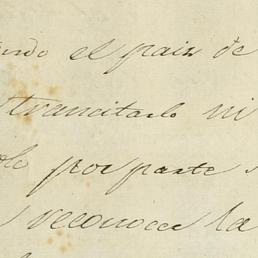 endo el pais de
transitarlo ni
do por parte
reconoce la